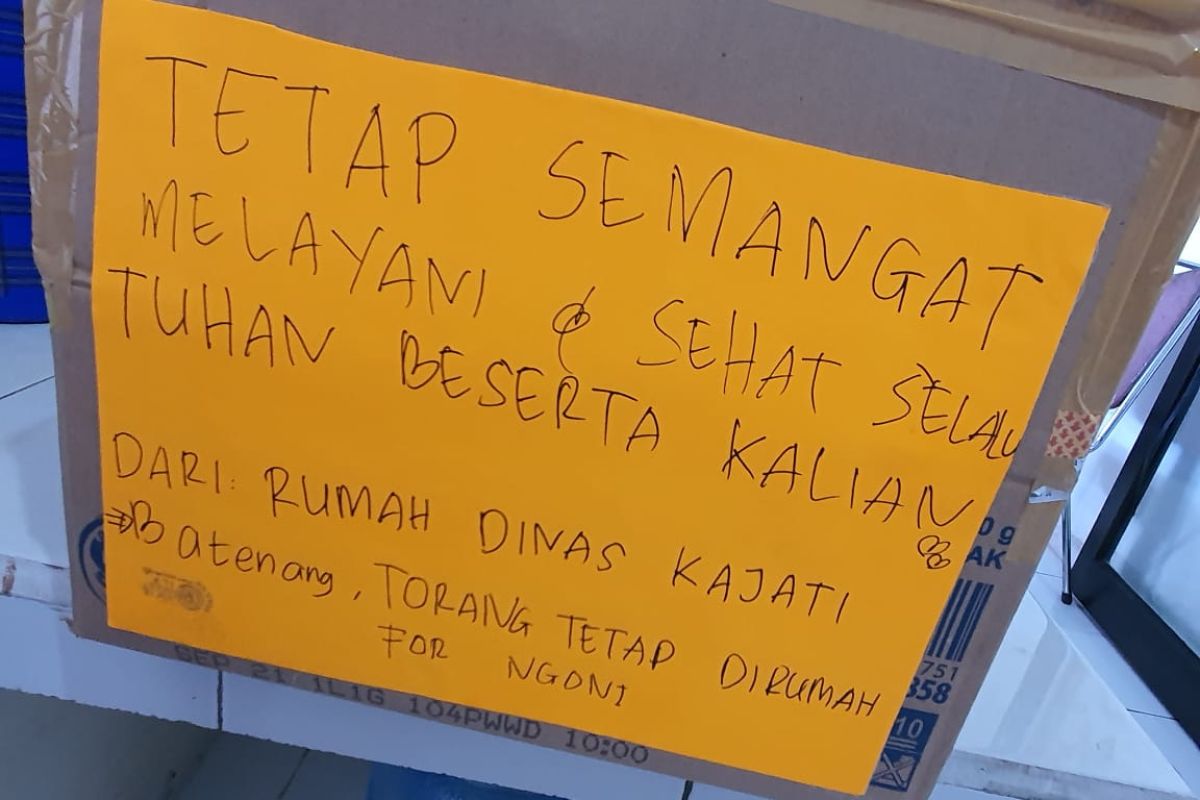 TETAP SEMANGAT
MELAYANI & SEHAT SELALU
TUHAN BESERTA KALIAN
DARI: RUMAH DINAS KAJATI
⇒Batenang, TORANG TETAP DIRUMAH
FOR NGONI
SEP 21 1L1G 104PWWD 10:00
0 g
AK
751
358
10